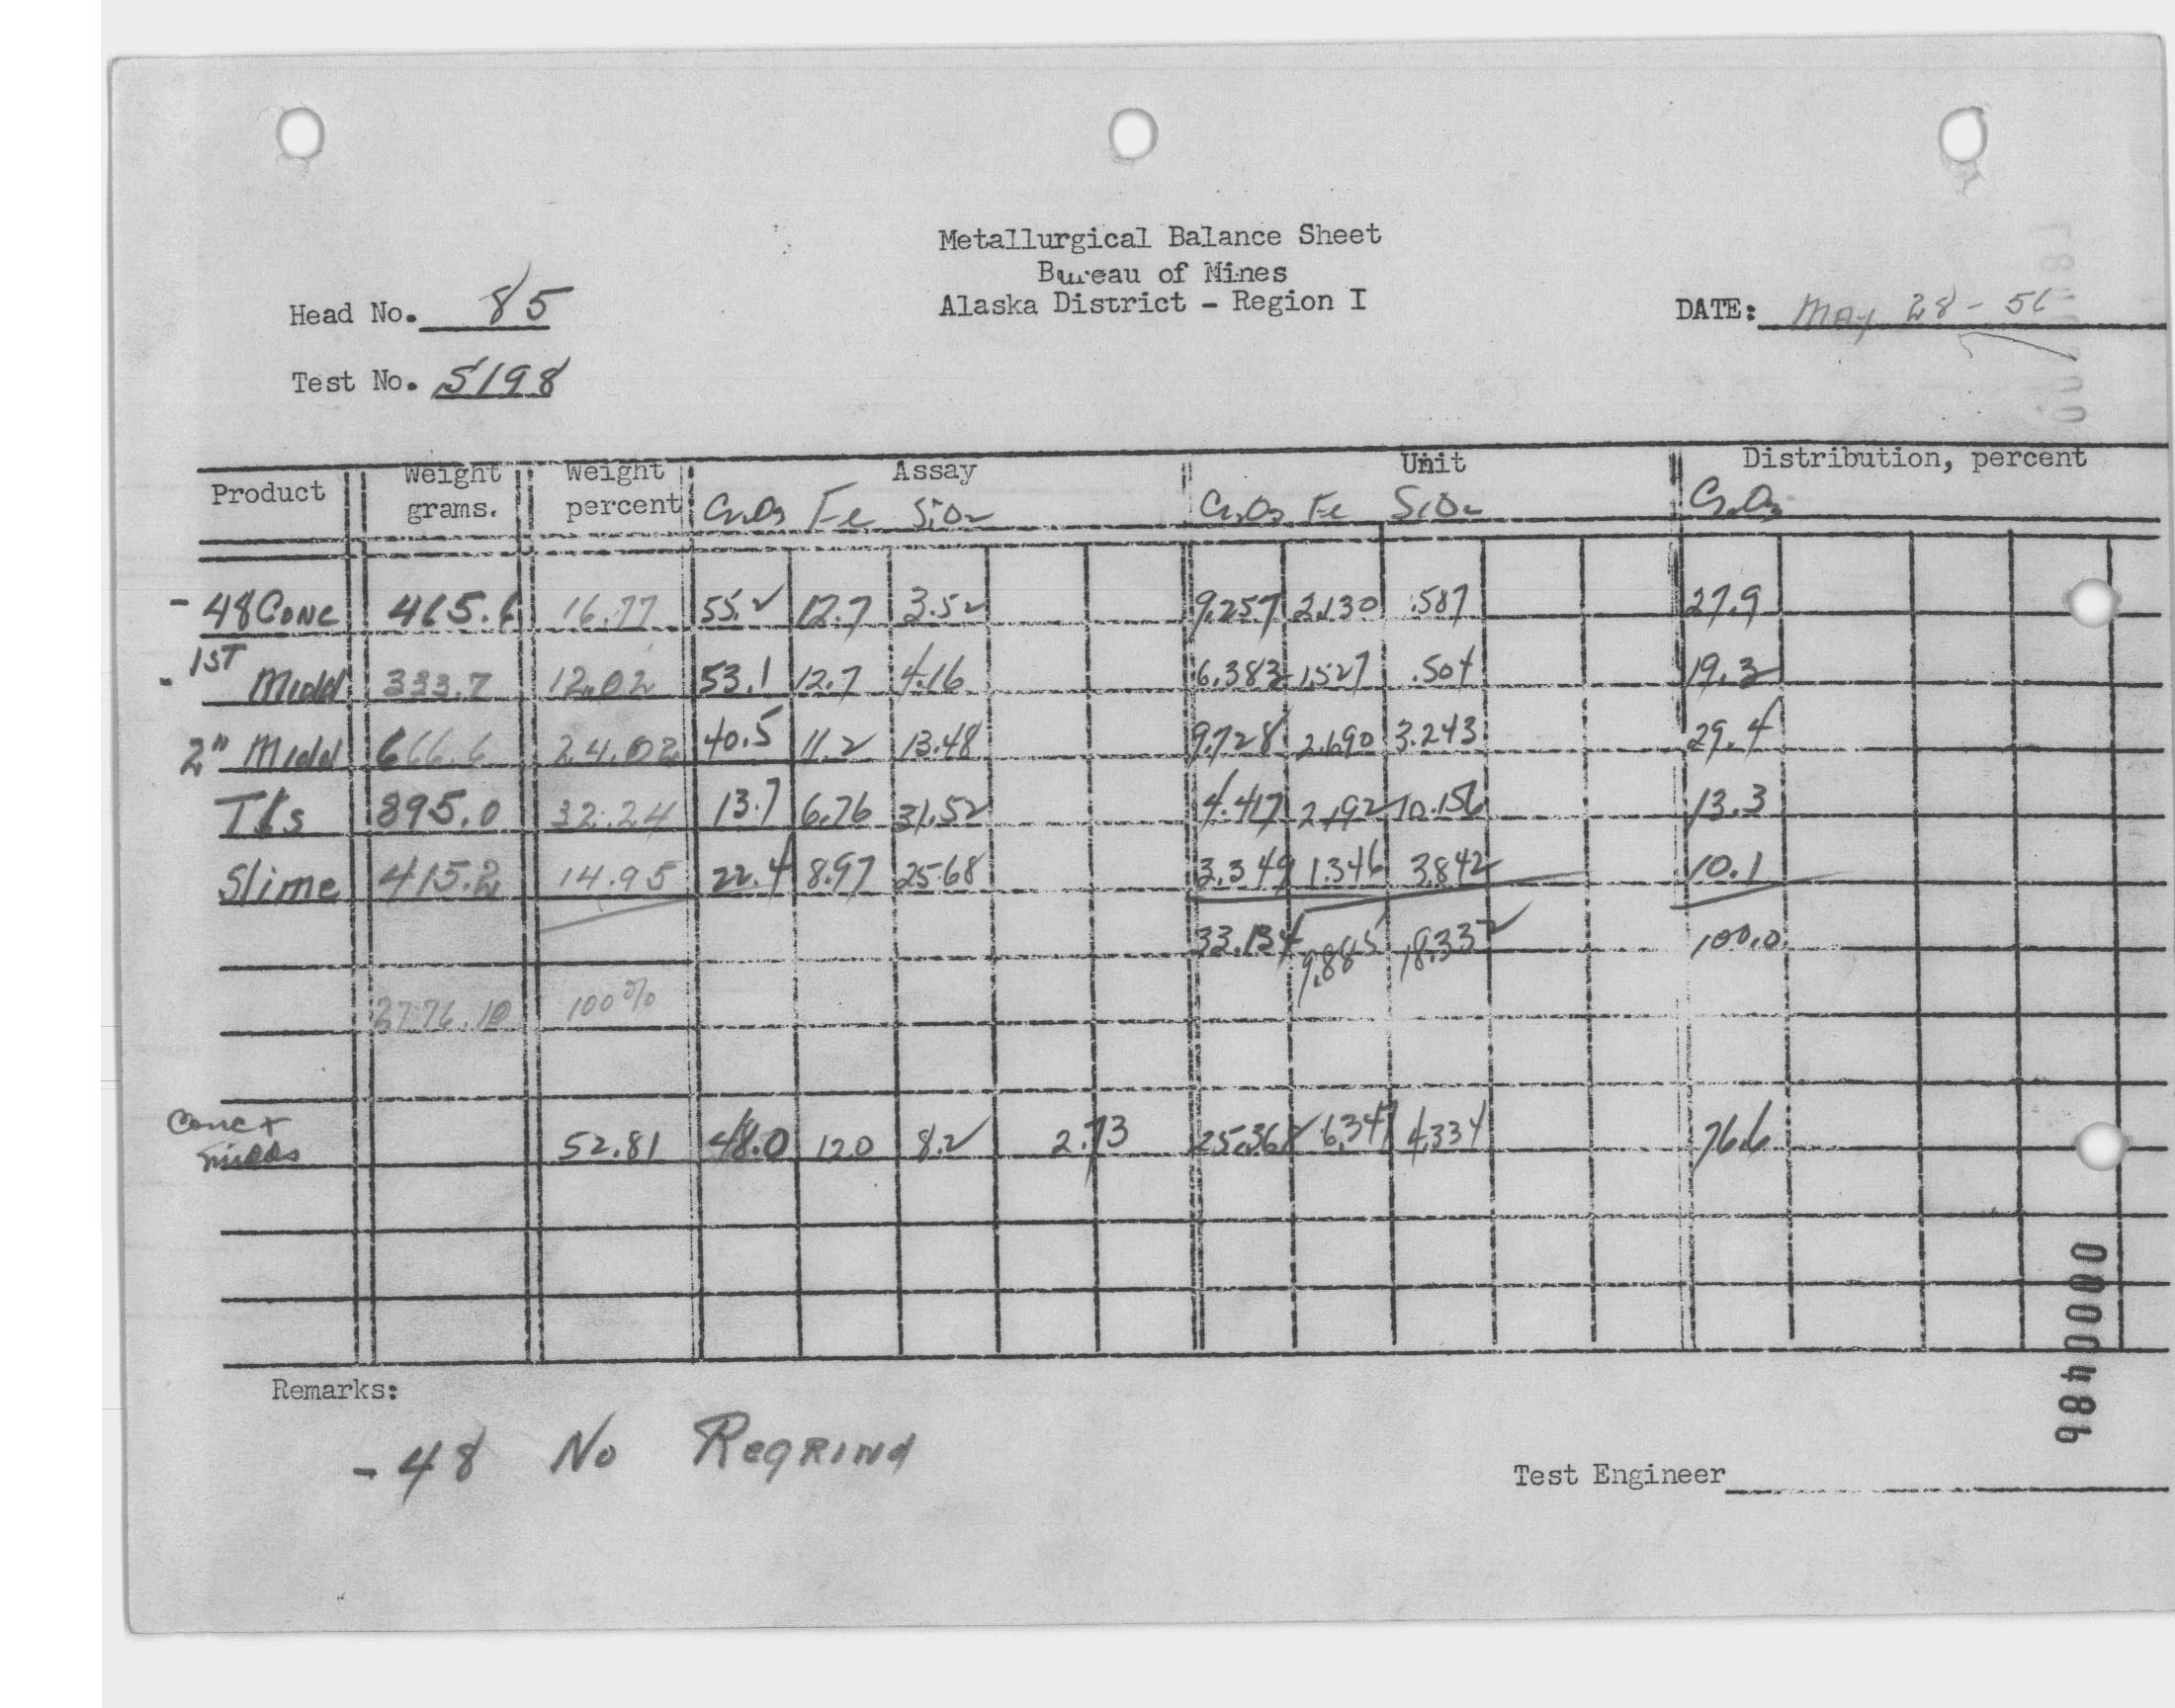 Metallurgical Balance Sheet
Bureau of Mines
Alaska District - Region I
Head No. 85
DATE: May 28 - 56
Test No. 5198
Product Weight grams. Weight percent Assay Unit Distribution, percent
Cr2O3 Fe SiO2 Cr2O3 Fe SiO2 Cr2O3
- 48 Conc 465.6 16.77 55.2 12.7 3.52 9.257 2.130 .587 27.9
- 1ST Midd 333.7 12.02 53.1 12.7 4.16 6.383 1.527 .504 19.3
2" Midd 666.6 24.02 40.5 11.2 13.48 9.728 2.690 3.243 29.4
Tls 895.0 32.24 13.7 6.76 31.52 4.417 2.192 10.156 13.3
Slime 415.2 14.95 22.4 8.97 25.68 3.349 1.346 3.842 10.1
33.134 9.885 18.332 100.0
2776.10 100%
Conc + midds 52.81 48.0 12.0 8.2 2.73 25.368 6.347 4.334 76.6
Remarks:
-48 No Regrind
Test Engineer
0000486